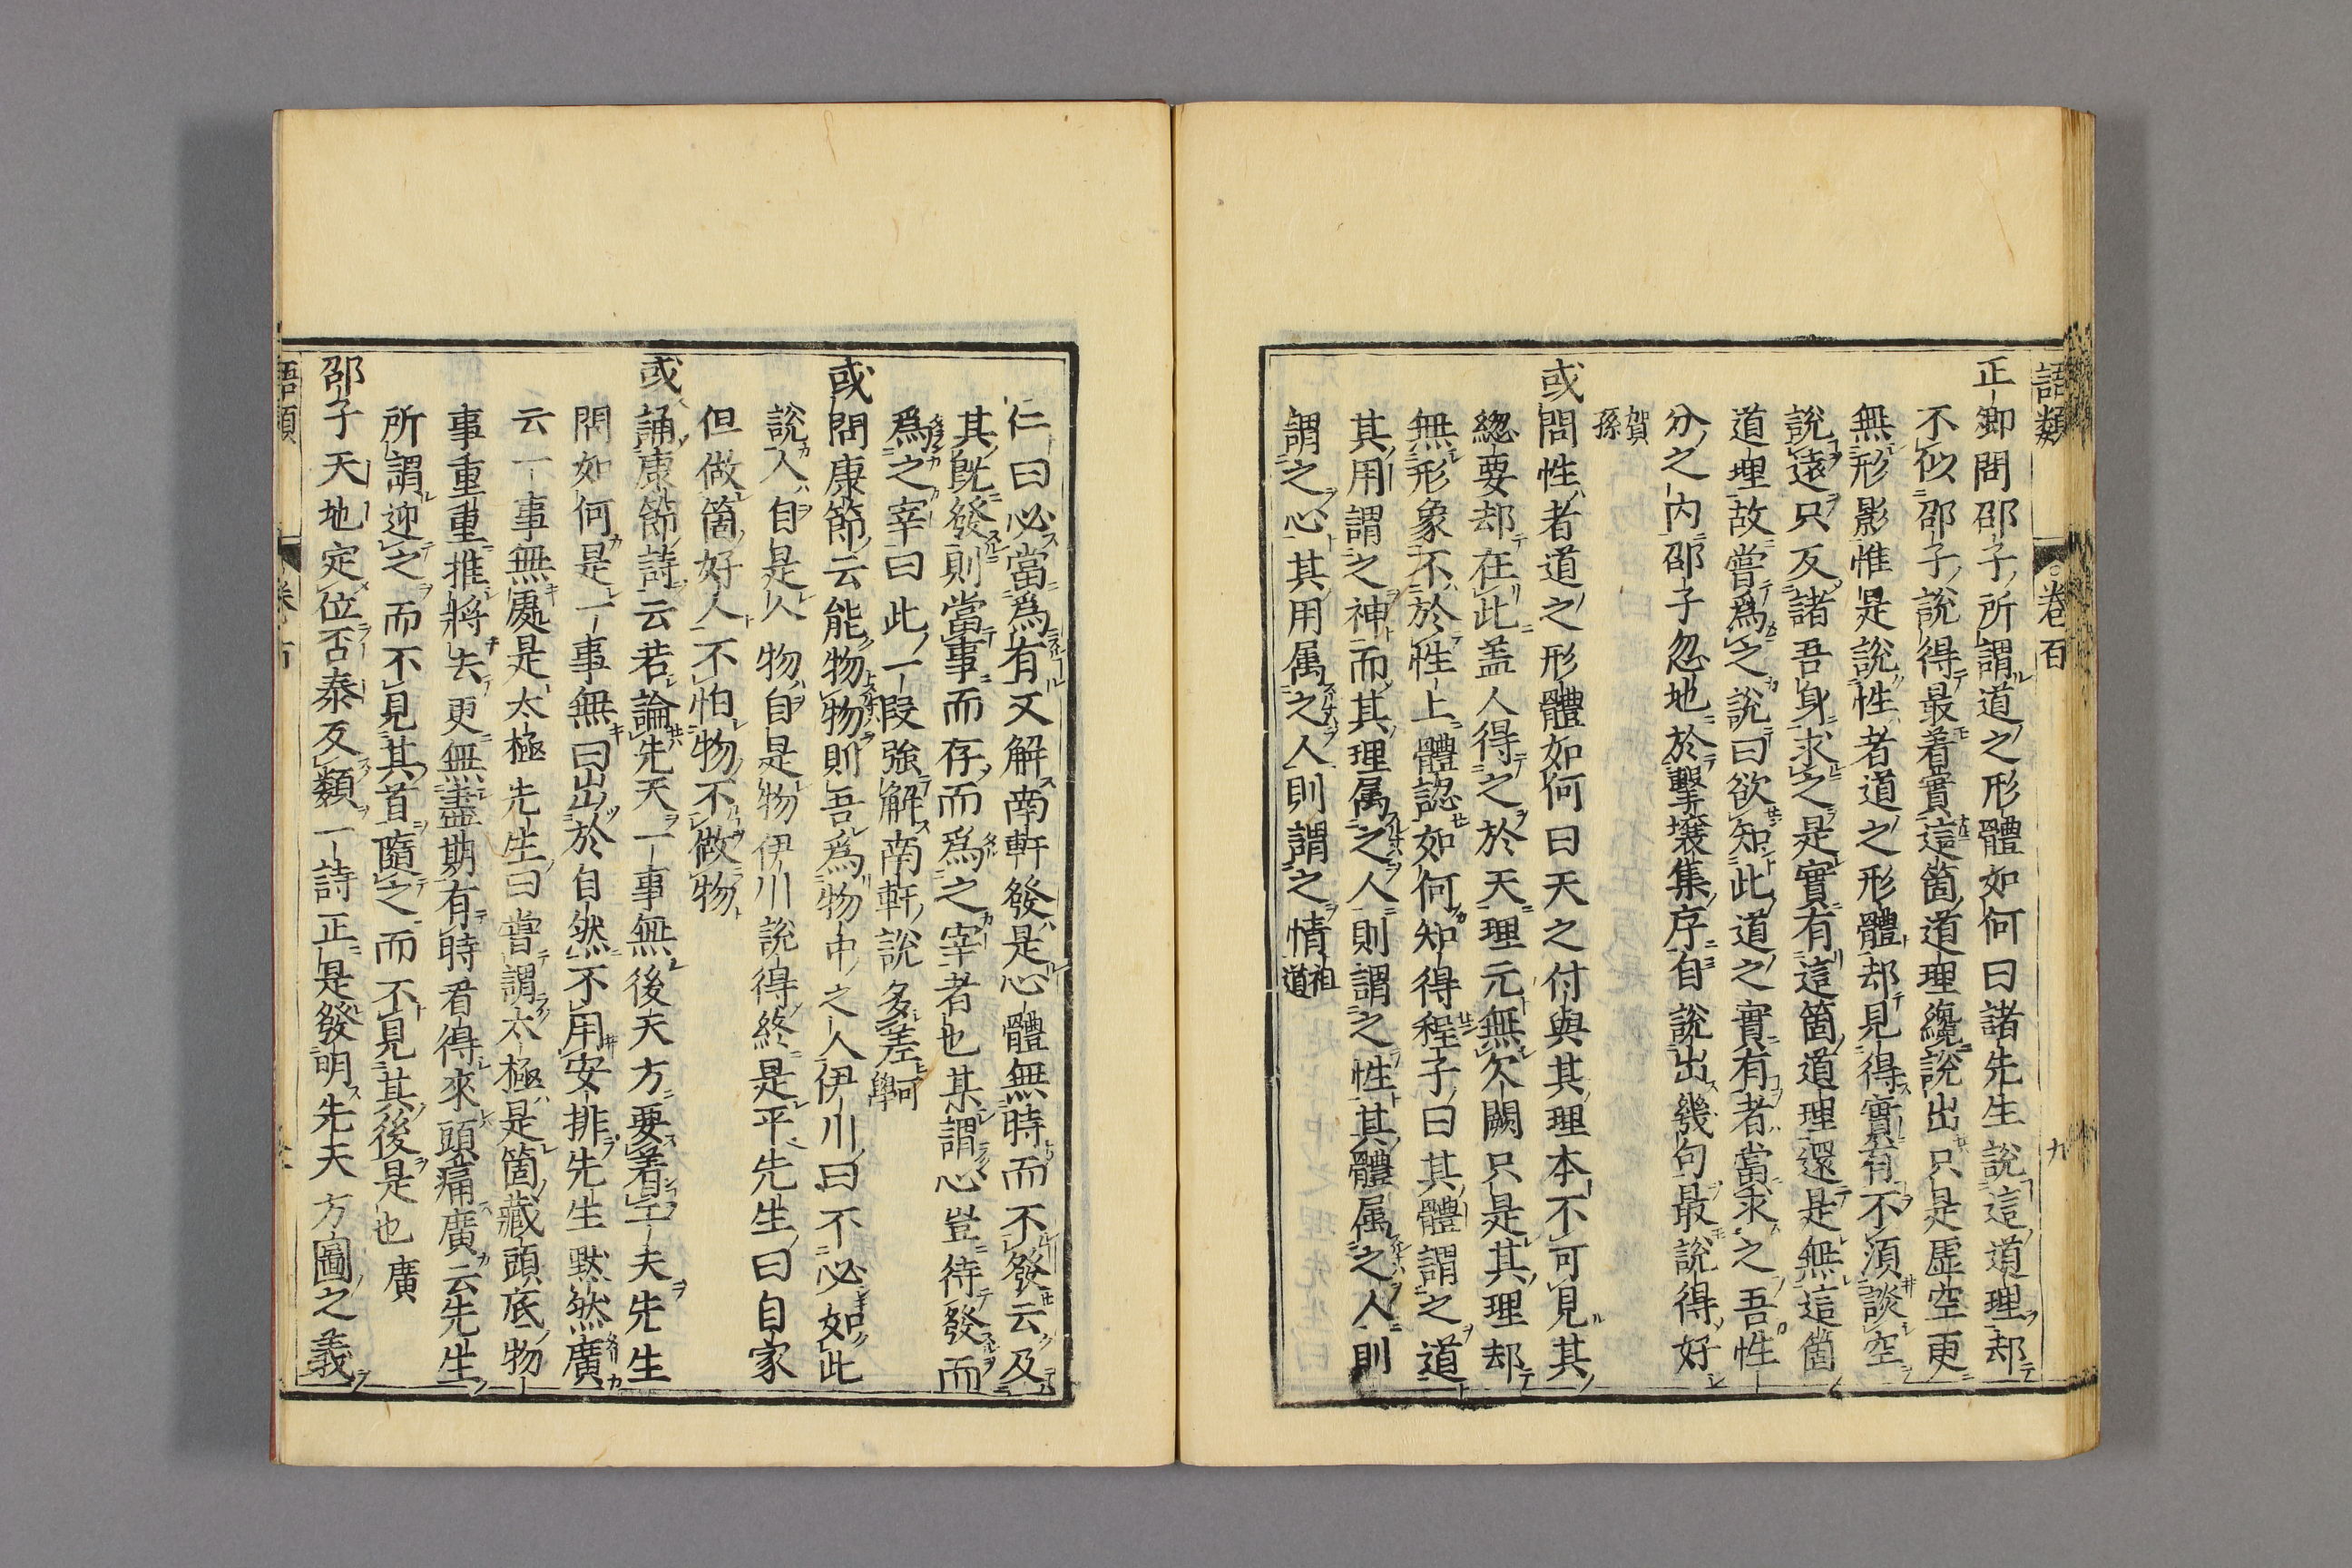 語類 卷百 九
正卿問邵子所謂道之形體如何曰諸先生說這道理却
不似邵子說得最着實這箇道理纔說出只是虛空更
無形影惟是說性者道之形體却見得實有不須談空
說遠只反諸吾身求之是實有這箇道理還是無這箇
道理故嘗爲之說曰欲知此道之實有者當求之吾性
分之内邵子忽地於擊壤集序自說出幾句最說得好
賀孫
或問性者道之形體如何曰天之付與其理本不可見其
緫要却在此盖人得之於天理元無欠闕只是其理却
無形象不於性上體認如何知得程子曰其體謂之道
其用謂之神而其理属之人則謂之性其體属之人則
謂之心其用属之人則謂之情祖道
仁曰必當爲有又解南軒發是心體無時而不發云及
其旣發則當事而存而爲之宰者也某謂心豈待發而
爲之宰曰此一叚強解南軒說多差㽦學
或問康節云能物物則吾爲物中之人伊川曰不必如此
說人自是人物自是物伊川說得終是平先生曰自家
但做箇好人不怕物不做物
或誦康節詩云若論先天一事無後天方要着工夫先生
問如何是一事無曰出於自然不用安排先生默然廣
云一事無處是太極先生曰嘗謂太極是箇藏頭底物
事重重推將去更無盡期有時看得來頭痛廣云先生
所謂迎之而不見其首隨之而不見其後是也廣
邵子天地定位否泰反類一詩正是發明先天方圖之義
語類